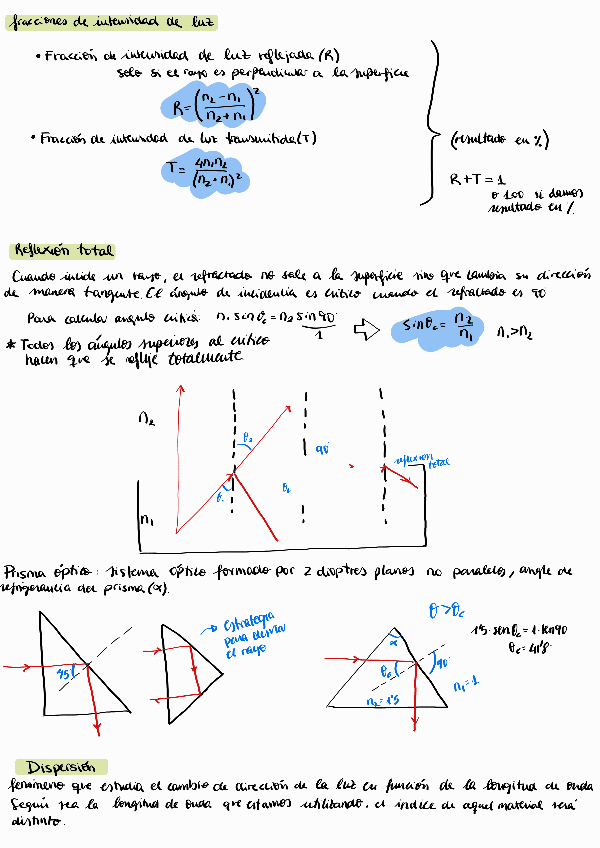 fracciones de intensidad de luz
• Fracción de intensidad de luz reflejada (R)
solo si el rayo es perpendicular a la superficie
R = (n₂ - n₁ / n₂ + n₁)²
• Fracción de intensidad de luz transmitida (T)
T = 4n₁n₂ / (n₂ + n₁)²
(resultado en %)
R + T = 1
o 100 si damos
resultado en %
Reflexión total
Cuando incide un rayo, el refractado no sale a la superficie sino que cambia su dirección
de manera tangente. El ángulo de incidencia es crítico cuando el refractado es 90
Para calcular angulo critico: n₁ sin θc = n₂ sin 90°
1
sin θc = n₂ / n₁
n₁ > n₂
* Todos los ángulos superiores al critico
hacen que se refleje totalmente
n₂
θ₂
90°
reflexión
total
θ₁
θc
n₁
Prisma óptico: sistema óptico formado por 2 dioptres planos no paralelos, angle de
refrigerancia del prisma (α).
estrategia
para desviar
el rayo
45°
θ > θc
1'5 · sen θc = 1 · sen 90
θc = 41'8°
α
θc
90°
n₂ = 1'5
n₁ = 1
Dispersión
fenómeno que estudia el cambio de dirección de la luz en función de la longitud de onda
Según sea la longitud de onda que estamos utilizando, el índice de aquel material será
distinto.